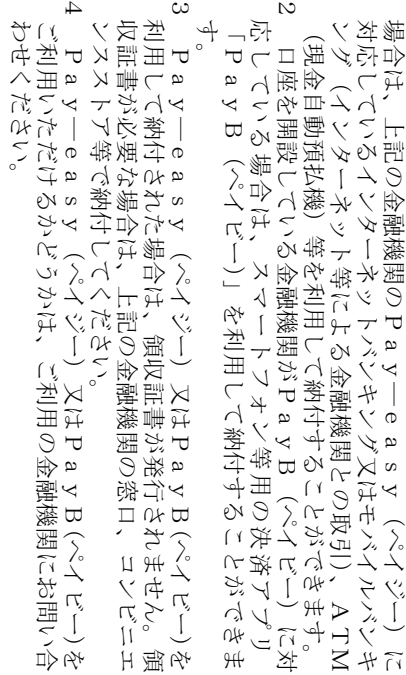 場合は、上記の金融機関のPay―easy(ペイジー)に
対応しているインターネットバンキング又はモバイルバンキ
ング(インターネット等による金融機関との取引)、ATM
(現金自動預払機)等を利用して納付することができます。
2 口座を開設している金融機関がPayB(ペイビー)に対
応している場合は、スマートフォン等用の決済アプリ
「PayB(ペイビー)」を利用して納付することができま
す。
3 Pay―easy(ペイジー)又はPayB(ペイビー)を
利用して納付された場合は、領収証書が発行されません。領
収証書が必要な場合は、上記の金融機関の窓口、コンビニエ
ンスストア等で納付してください。
4 Pay―easy(ペイジー)又はPayB(ペイビー)を
ご利用いただけるかどうかは、ご利用の金融機関にお問い合
わせください。